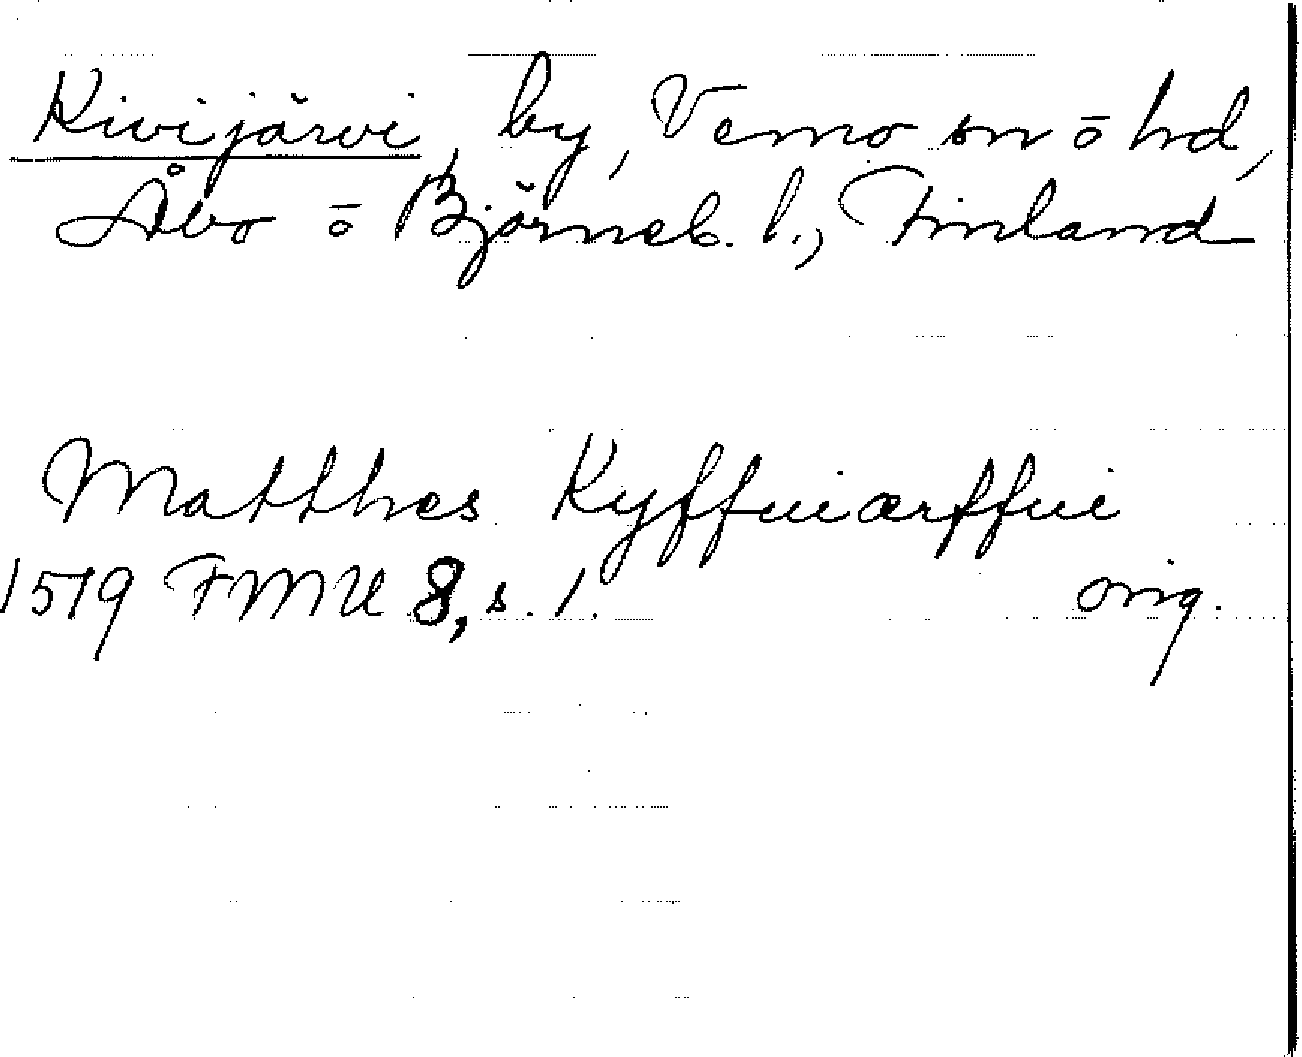 Kivijärvi, by, Vemo sn o hd,
Åbo o Björneb. l., Finland
Matthes Kyffuiærffui
1519 FMU 8, s. 1. orig.